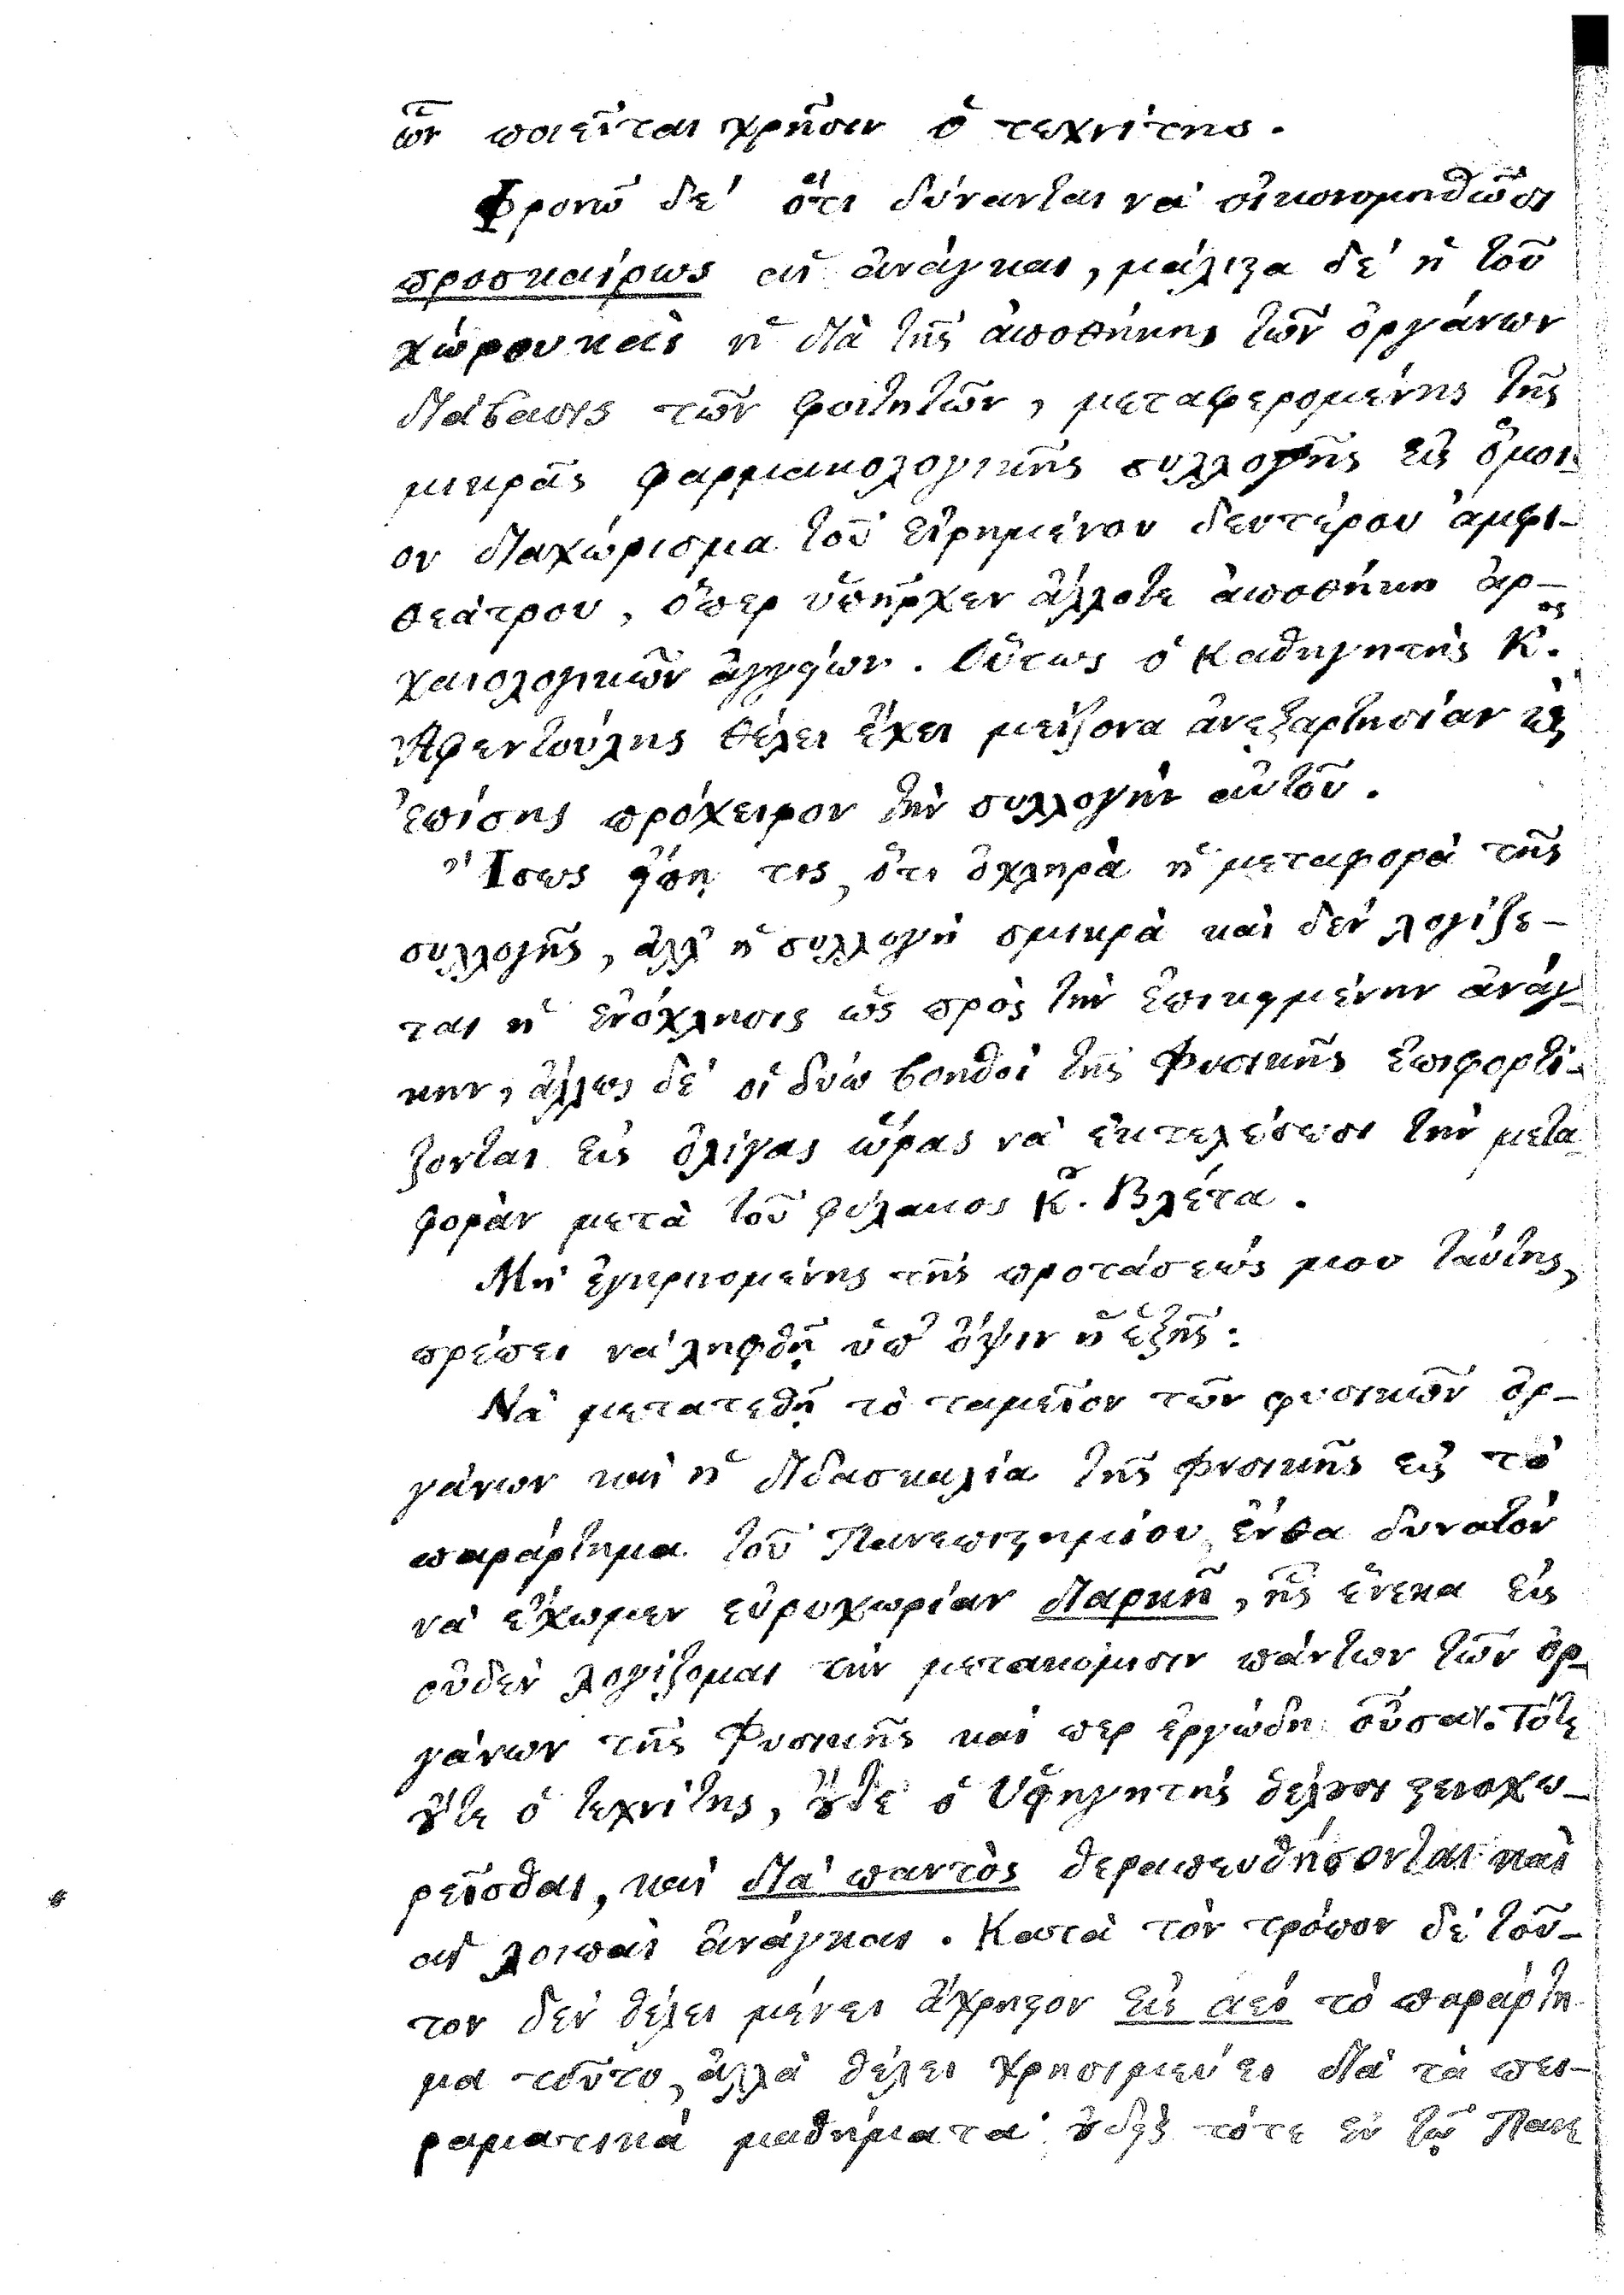 ὧν ποιεῖται χρῆσιν ὁ τεχνίτης.
Φρονῶ δὲ ὅτι δύνανται νὰ οἰκονομηθῶσι
προσκαίρως αἱ ἀνάγκαι, μάλιστα δὲ ἡ τοῦ
χώρου καὶ ἡ διὰ τῆς ἀποθήκης τῶν ὀργάνων
διάβασις τῶν φοιτητῶν, μεταφερομένης τῆς
μικρᾶς φαρμακολογικῆς συλλογῆς εἰς ὅμοι-
ον διαχώρισμα τοῦ εἰρημένου δευτέρου ἀμφι-
θεάτρου, ὅπερ ὑπῆρχεν ἄλλοτε ἀποθήκη ἀρ-
χαιολογικῶν ἀγγείων. Οὕτως ὁ καθηγητὴς Κ.ος
Ἀφεντούλης θέλει ἔχει μείζονα ἀνεξαρτησίαν καὶ
ἐπίσης πρόχειρον τὴν συλλογὴν αὐτοῦ.
Ἴσως εἴπῃ τις, ὅτι ὀχληρὰ ἡ μεταφορὰ τῆς
συλλογῆς, ἀλλ' ἡ συλλογὴ σμικρὰ καὶ δὲν λογίζε-
ται ἡ ἐνόχλησις ὡς πρὸς τὴν ἐπικειμένην ἀνάγ-
κην, ἄλλως δὲ οἱ δύω βοηθοὶ τῆς Φυσικῆς ἐπιφορτί-
ζονται εἰς ὀλίγας ὥρας νὰ ἐκτελέσωσι τὴν μετα-
φορὰν μετὰ τοῦ φύλακος Κ.ου Βλέτα.
Μὴ ἐγκρινομένης τῆς προτάσεώς μου ταύτης,
πρέπει νὰ ληφθῇ ὑπ' ὄψιν ἡ ἑξῆς:
Νὰ μετατεθῇ τὸ ταμεῖον τῶν φυσικῶν ὀρ-
γάνων καὶ ἡ διδασκαλία τῆς Φυσικῆς εἰς τὸ
παράρτημα τοῦ Πανεπιστημίου, ἔνθα δυνατὸν
νὰ ἔχωμεν εὐρυχωρίαν διαρκῆ, ἧς ἕνεκα εἰς
οὐδὲν λογίζομαι τὴν μετακόμισιν πάντων τῶν ὀρ-
γάνων τῆς Φυσικῆς καί περ ἐργώδη οὖσαν. Τότε
οὔτε ὁ τεχνίτης, οὔτε ὁ Ὑφηγητὴς θέλουσι στενοχω-
ρεῖσθαι, καὶ διὰ παντὸς θεραπευθήσονται καὶ
αἱ λοιπαὶ ἀνάγκαι. Κατὰ τὸν τρόπον δὲ τοῦ-
τον δὲν θέλει μένει ἄχρηστον εἰς ἀεὶ τὸ παράρτη-
μα τοῦτο, ἀλλὰ θέλει χρησιμεύει διὰ τὰ πει-
ραματικὰ μαθήματα· οὐδεὶς τότε ἐν τῷ Πανε